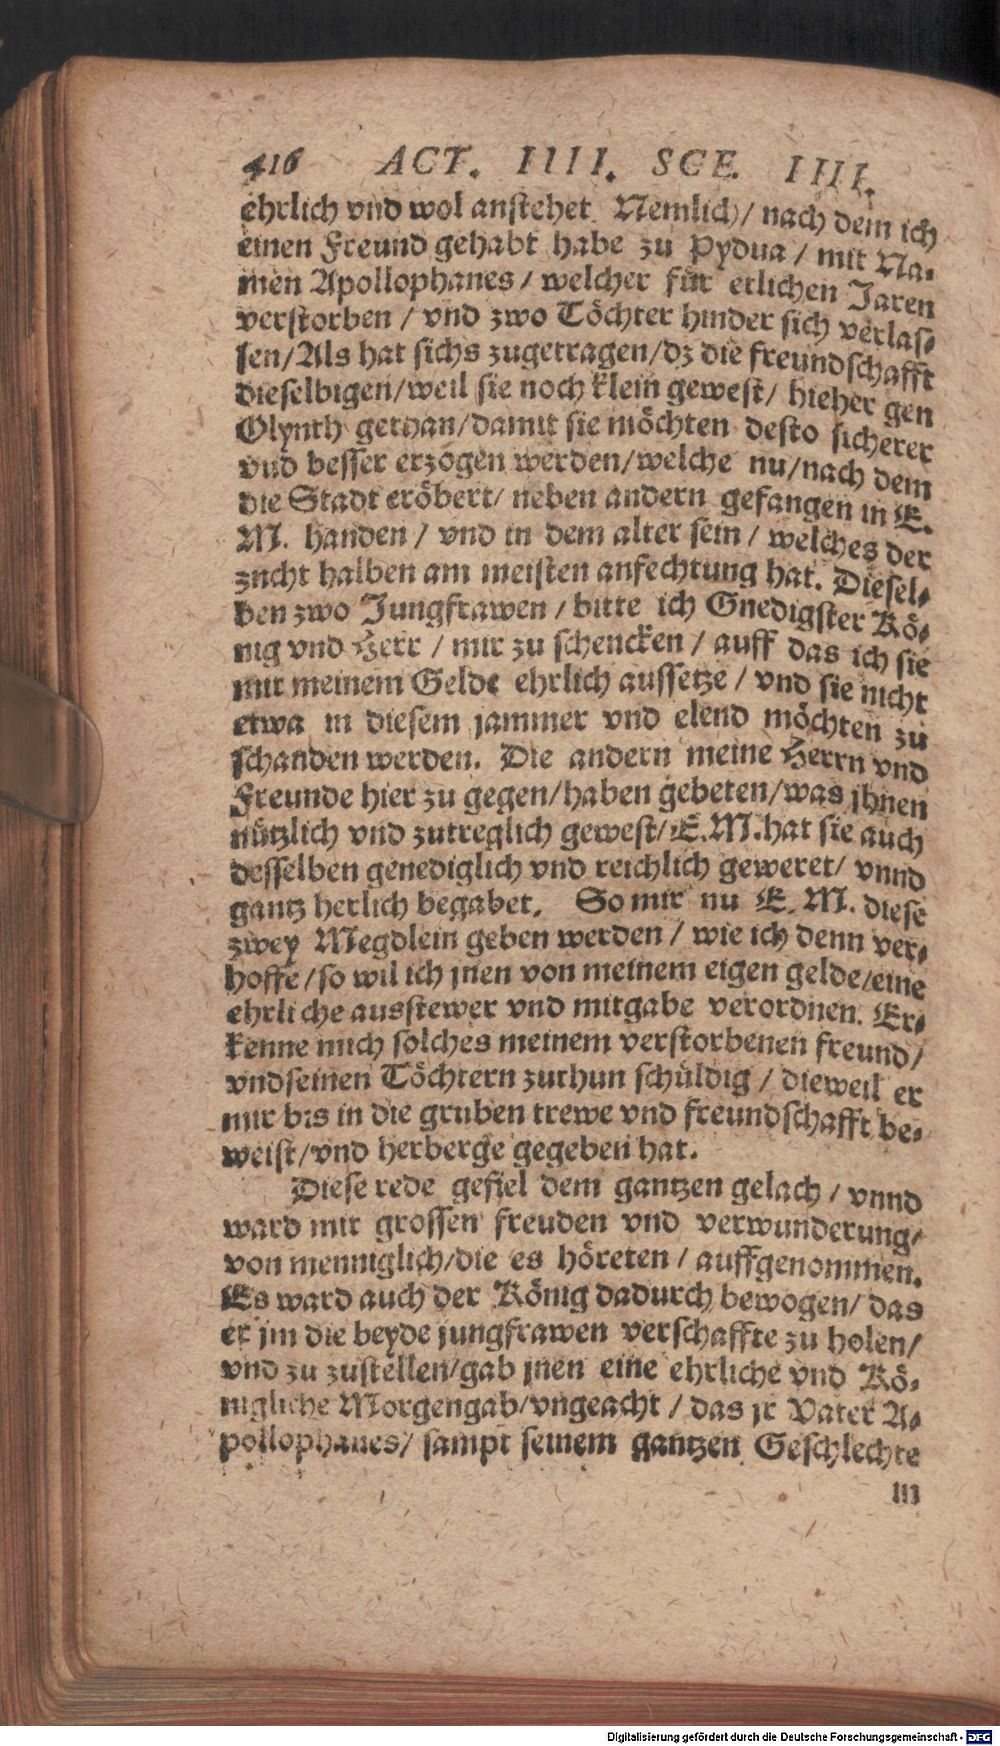 416 ACT. IIII. SCE. IIII.
ehrlich vnd wol anstehet. Nemlich/ nach dem ich
einen Freund gehabt habe zu Pydna / mit Na-
men Apollophanes / welcher für etlichen Jaren
verstorben / vnd zwo Töchter hinder sich verlas-
sen/Als hat sichs zugetragen/dz die freundschafft
dieselbigen/weil sie noch klein gewest/ hieher gen
Olynth gethan/damit sie möchten desto sicherer
vnd besser erzogen werden/welche nu/nach dem
die Stadt eröbert/ neben andern gefangen in E.
M. handen / vnd in dem alter sein / welches der
zucht halben am meisten anfechtung hat. Diesel-
ben zwo Jungfrawen / bitte ich Gnedigster Kö-
nig vnd Herr / mir zu schencken / auff das ich sie
mit meinem Gelde ehrlich aussetze / vnd sie nicht
etwa in diesem jammer vnd elend möchten zu
schanden werden. Die andern meine Herrn vnd
Freunde hier zu gegen/haben gebeten/was jhnen
nützlich vnd zutreglich gewest/E.M.hat sie auch
desselben genediglich vnd reichlich geweret/ vnnd
gantz herlich begabet. So mir nu E. M. diese
zwey Megdlein geben werden / wie ich denn ver-
hoffe/so wil ich jnen von meinem eigen gelde/eine
ehrliche ausstewer vnd mitgabe verordnen. Er-
kenne mich solches meinem verstorbenen freund/
vndseinen Töchtern zuthun schüldig / dieweil er
mir bis in die gruben trewe vnd freundschafft be-
weist/vnd herberge gegeben hat.
Diese rede gefiel dem gantzen gelach / vnnd
ward mit grossen freuden vnd verwunderung/
von menniglich/die es höreten / auffgenommen.
Es ward auch der König dadurch bewogen/ das
er jm die beyde jungfrawen verschaffte zu holen/
vnd zu zustellen/gab jnen eine ehrliche vnd Kö-
nigliche Morgengab/vngeacht / das jr Vater A-
pollophanes/ sampt seinem gantzen Geschlechte
in
Digitalisierung gefördert durch die Deutsche Forschungsgemeinschaft - DFG